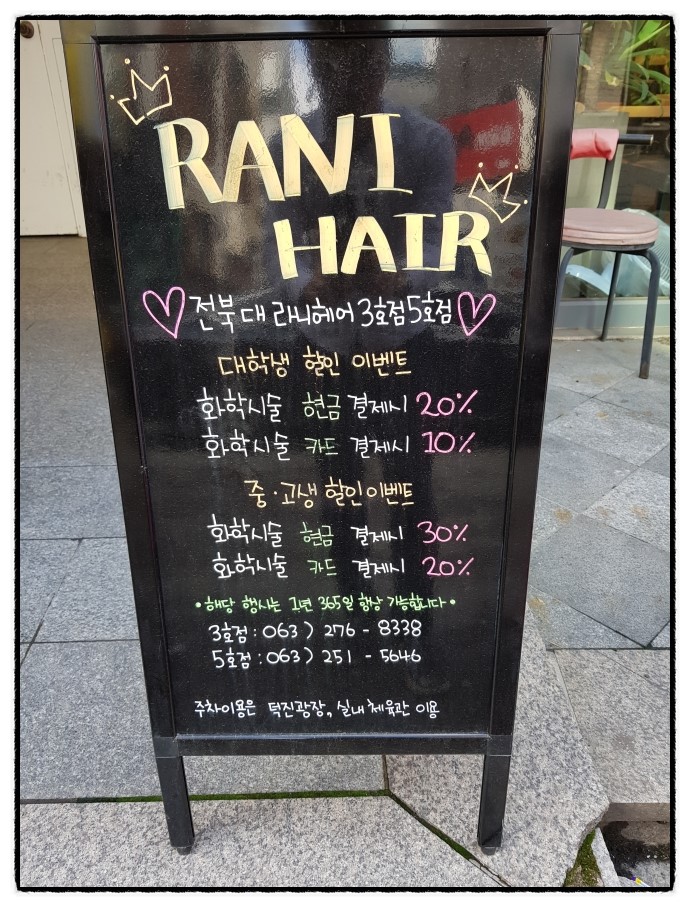 RANI
HAIR
전북대 라니헤어 3호점 5호점
대학생 할인 이벤트
화학시술 현금 결제시 20%
화학시술 카드 결제시 10%
중·고생 할인 이벤트
화학시술 현금 결제시 30%
화학시술 카드 결제시 20%
• 해당 행사는 1년 365일 항상 가능합니다 •
3호점 : 063) 276 - 8338
5호점 : 063) 251 - 5646
주차이용은 덕진광장, 실내체육관 이용